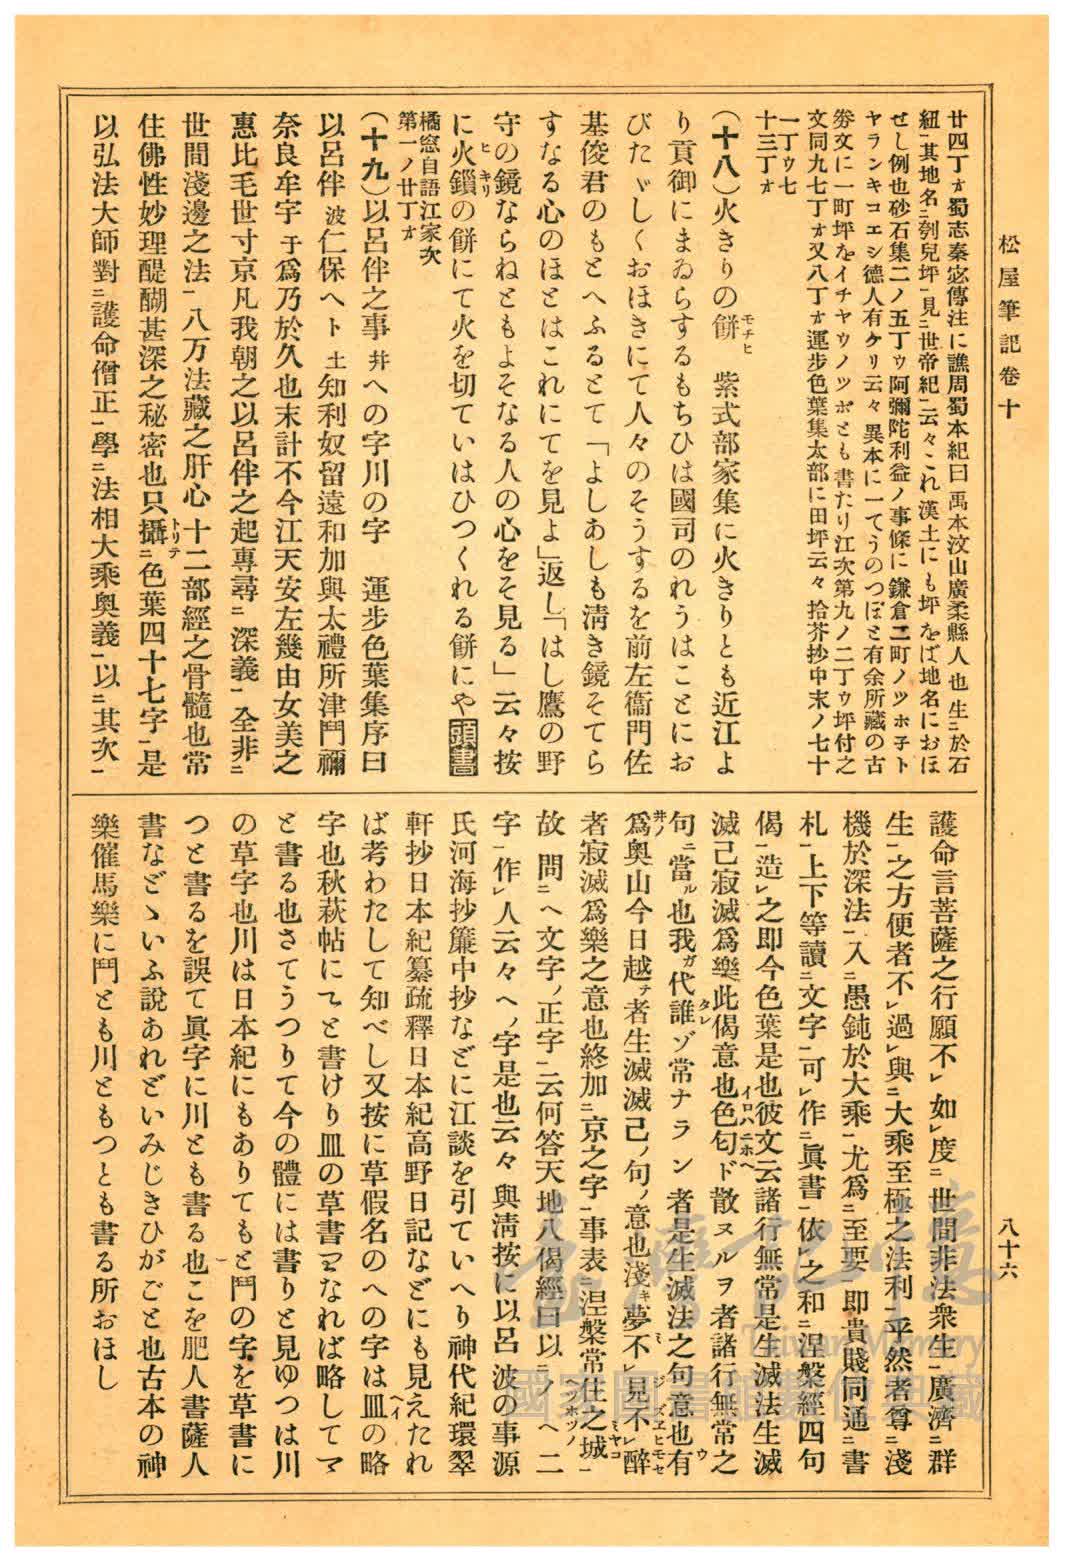 松屋筆記卷十
八十六
廿四丁オ蜀志秦宓傳注に譙周蜀本紀曰禹本汶山廣柔縣人也生ニ於石
紐ニ其地名ニ刳兒坪ニ見ニ世帝紀ニ云々これ漢土にも坪をば地名におほ
せし例也砂石集二ノ五丁ウ阿彌陀利益ノ事條に鎌倉ニ町ノツホ子ト
ヤランキコエシ德人有ケリ云々異本に一てうのつぼと有余所藏の古
劵文に一町坪をイチヤウノツボとも書たり江次第九ノ二丁ウ坪付之
文同九七丁オ又八丁オ運步色葉集太部に田坪云々拾芥抄中末ノ七十
一丁ウ七
十三丁オ
(十八)火きりの餅モチヒ　紫式部家集に火きりとも近江よ
り貢御にまゐらするもちひは國司のれうはことにお
びたゞしくおほきにて人々のそうするを前左衞門佐
基俊君のもとへふるとて「よしあしも淸き鏡そてら
すなる心のほとはこれにてを見よ」返し「はし鷹の野
守の鏡ならねともよそなる人の心をそ見る」云々按
に火鑽ヒキリの餅にて火を切ていはひつくれる餅にや頭書
橘窓自語江家次
第一ノ廿丁オ
(十九)以呂伴之事　幷への字川の字　運步色葉集序曰
以呂伴波仁保へト土知利奴留遠和加與太禮所津鬥禰
奈良牟字于爲乃於久也末計不今江天安左幾由女美之
惠比毛世寸京凡我朝之以呂伴之起專尋ニ深義一全非ニ
世間淺邊之法一八万法藏之肝心十二部經之骨髓也常
住佛性妙理醍醐甚深之秘密也只攝トリテニ色葉四十七字一是
以弘法大師對ニ護命僧正一學ニ法相大乘奧義一以ニ其次一
護命言菩薩之行願不レ如レ度ニ世間非法衆生一廣濟ニ群
生一之方便者不レ過レ與ニ大乘至極之法利一乎然者尊ニ淺
機於深法一入ニ愚鈍於大乘一尤爲ニ至要一即貴賤同通ニ書
札一上下等讀ニ文字一可レ作ニ眞書一依レ之和ニ涅槃經四句
偈一造レ之即今色葉是也彼文云諸行無常是生滅法生滅
滅已寂滅爲樂此偈意也色匂イロハニホヘド散ヌルヲ者諸行無常之
句ニ當ル也我ガ代誰タレゾ常ナラン者是生滅法之句意也有ウ
爲井ノ奧山今日越テ者生滅滅已ノ句ノ意也淺キ夢不レ見ミジ不レ醉ヱヒモセズ
者寂滅爲樂之意也終加ニ京之字一事表ニ涅槃常住之城ミヤコ一
故問ニヘ文字ノ正字一云何答天地八偈經曰以ニノヘホツノ二
字一作レ人云々へノ字是也云々與淸按に以呂波の事源
氏河海抄簾中抄などに江談を引ていへり神代紀環翠
軒抄日本紀纂疏釋日本紀高野日記などにも見えたれ
ば考わたして知べし又按に草假名のへの字は皿ヘイの略
字也秋萩帖にてと書けり皿の草書マなれば略してマ
と書る也さてうつりて今の體には書りと見ゆつは川
の草字也川は日本紀にもありてもと鬥の字を草書に
つと書るを誤て眞字に川とも書る也こを肥人書薩人
書などゝいふ說あれどいみじきひがごと也古本の神
樂催馬樂に鬥とも川ともつとも書る所おほし
臺灣記憶
Taiwan Memory
國家圖書館數位典藏